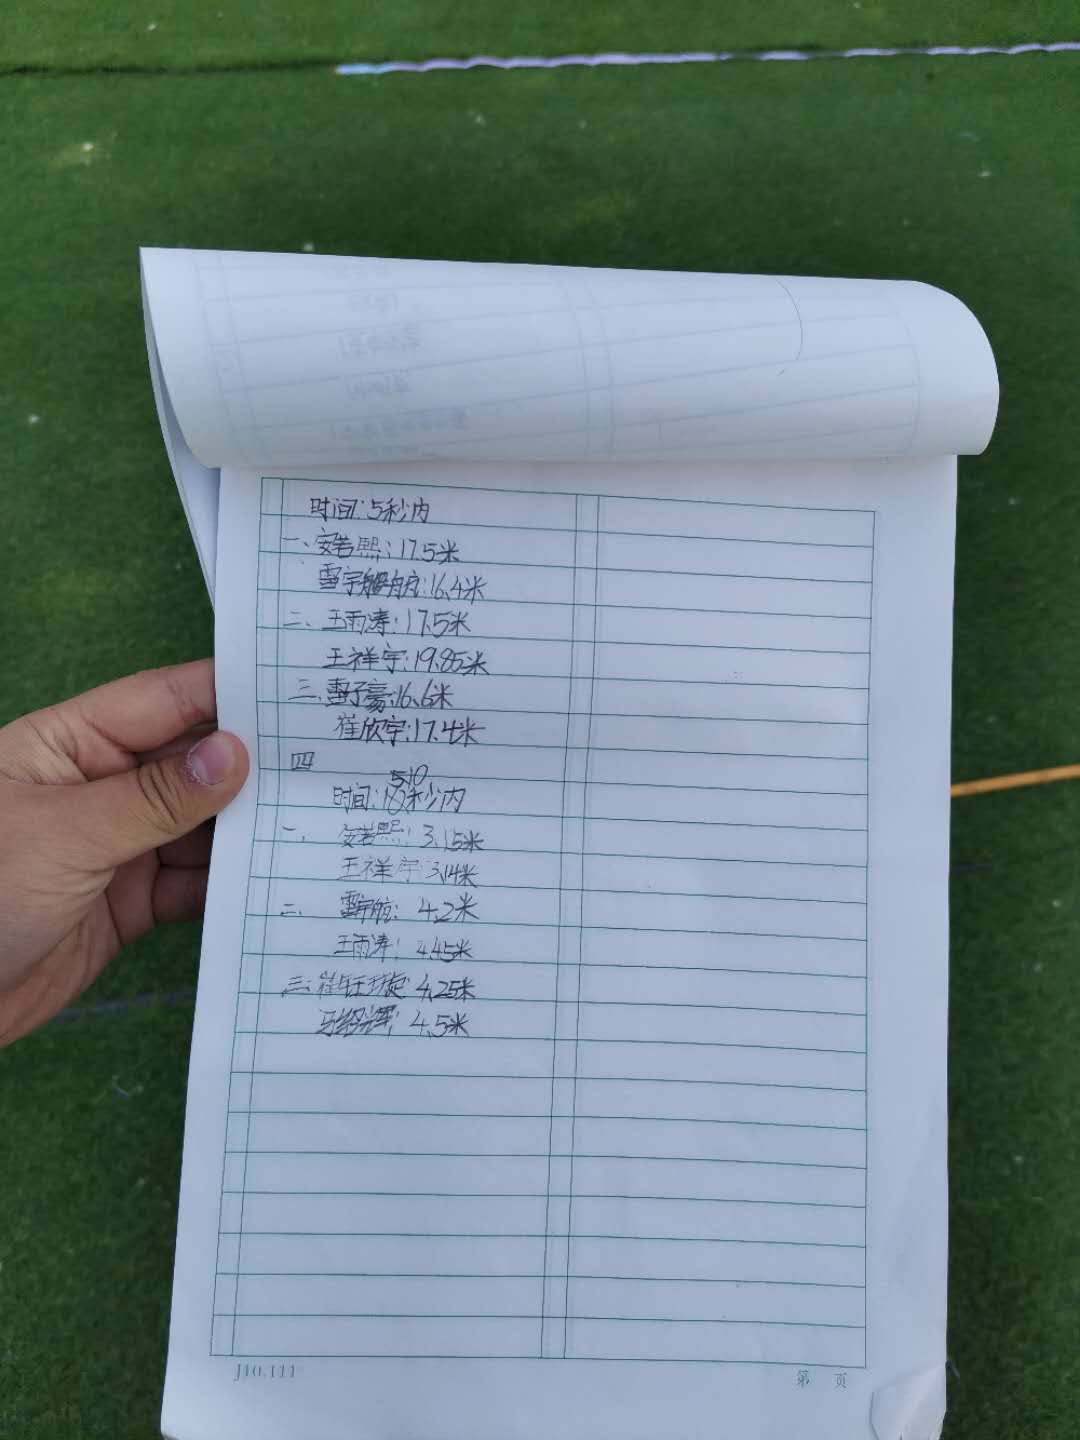 时间:5秒内
一、安若熙:17.5米
雷宇航:16.4米
二、王雨涛:17.5米
王祥宇:19.85米
三、雷子豪:16.6米
崔欣宇:17.4米
四
510
时间:10秒内
一、安若熙:3.15米
王祥宇:3.14米
二、雷宇航:4.2米
王雨涛:4.45米
三:崔钰璇:4.25米
马绍辉:4.5米
J10.111
第 页